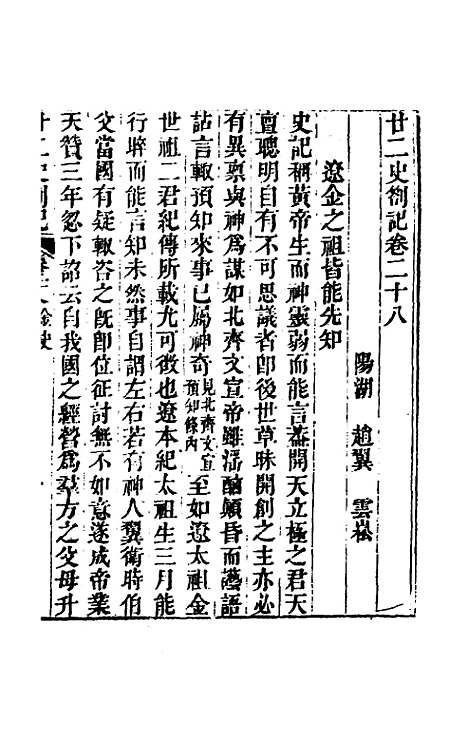 廿二史劄記卷二十八
陽湖 趙翼 雲崧
遼金之祖皆能先知
史記稱黃帝生而神靈弱而能言蓋開天立極之君天
亶聰明自有不可思議者卽後世草昧開創之主亦必
有異稟與神爲謀如北齊文宣帝雖湎酗顛昏而讝語
詀言輙預知來事已屬神奇見北齊文宣預知條內至如遼太祖金
世祖二君紀傳所載尤可徵也遼本紀太祖生三月能
行晬而能言知未然事自謂左右若有神人翼衛時伯
父當國有疑輙咨之旣卽位征討無不如意遂成帝業
天贊三年忽下詔云自我國之經營爲羣方之父母升
廿二史劄記 卷二八 金史